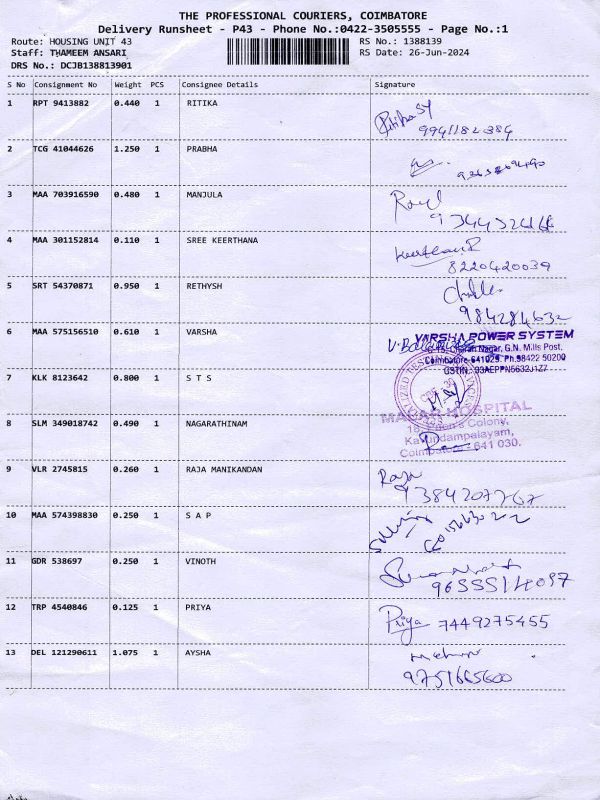 THE PROFESSIONAL COURIERS, COIMBATORE
Delivery Runsheet - P43 - Phone No.:0422-3505555 - Page No.:1
Route: HOUSING UNIT 43 RS No.: 1388139
Staff: THAMEEM ANSARI RS Date: 26-Jun-2024
DRS No.: DCJB138813901
S No Consignment No Weight PCS Consignee Details Signature
1 RPT 9413882 0.440 1 RITIKA
9941182384
2 TCG 41044626 1.250 1 PRABHA
3 MAA 703916590 0.480 1 MANJULA
4 MAA 301152814 0.110 1 SREE KEERTHANA
8220420039
5 SRT 54370871 0.950 1 RETHYSH
984284632
6 MAA 575156510 0.610 1 VARSHA
VARSHA POWER SYSTEM
Nagar, G.N. Mills Post,
Coimbatore-641029. Ph.98422 50200
GSTIN: 33AEPPN5632J1Z7
7 KLK 8123642 0.800 1 S T S
HOSPITAL
8 SLM 349018742 0.490 1 NAGARATHINAM
Colony,
Kavundampalayam,
Coimbatore - 641 030.
9 VLR 2745815 0.260 1 RAJA MANIKANDAN
Raja
9384207767
10 MAA 574398830 0.250 1 S A P
11 GDR 538697 0.250 1 VINOTH
12 TRP 4540846 0.125 1 PRIYA
Priya 7449275455
13 DEL 121290611 1.075 1 AYSHA
9751665600